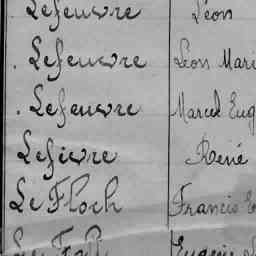 Lefeuvre Léon
. Lefeuvre Léon Mari
. Lefeuvre Marcel Eug
Lefièvre René
Le Floch Francis E